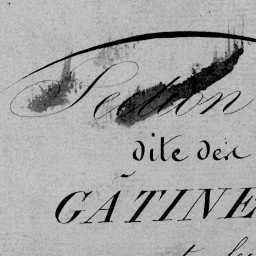 Section
dite des
GÂTINE